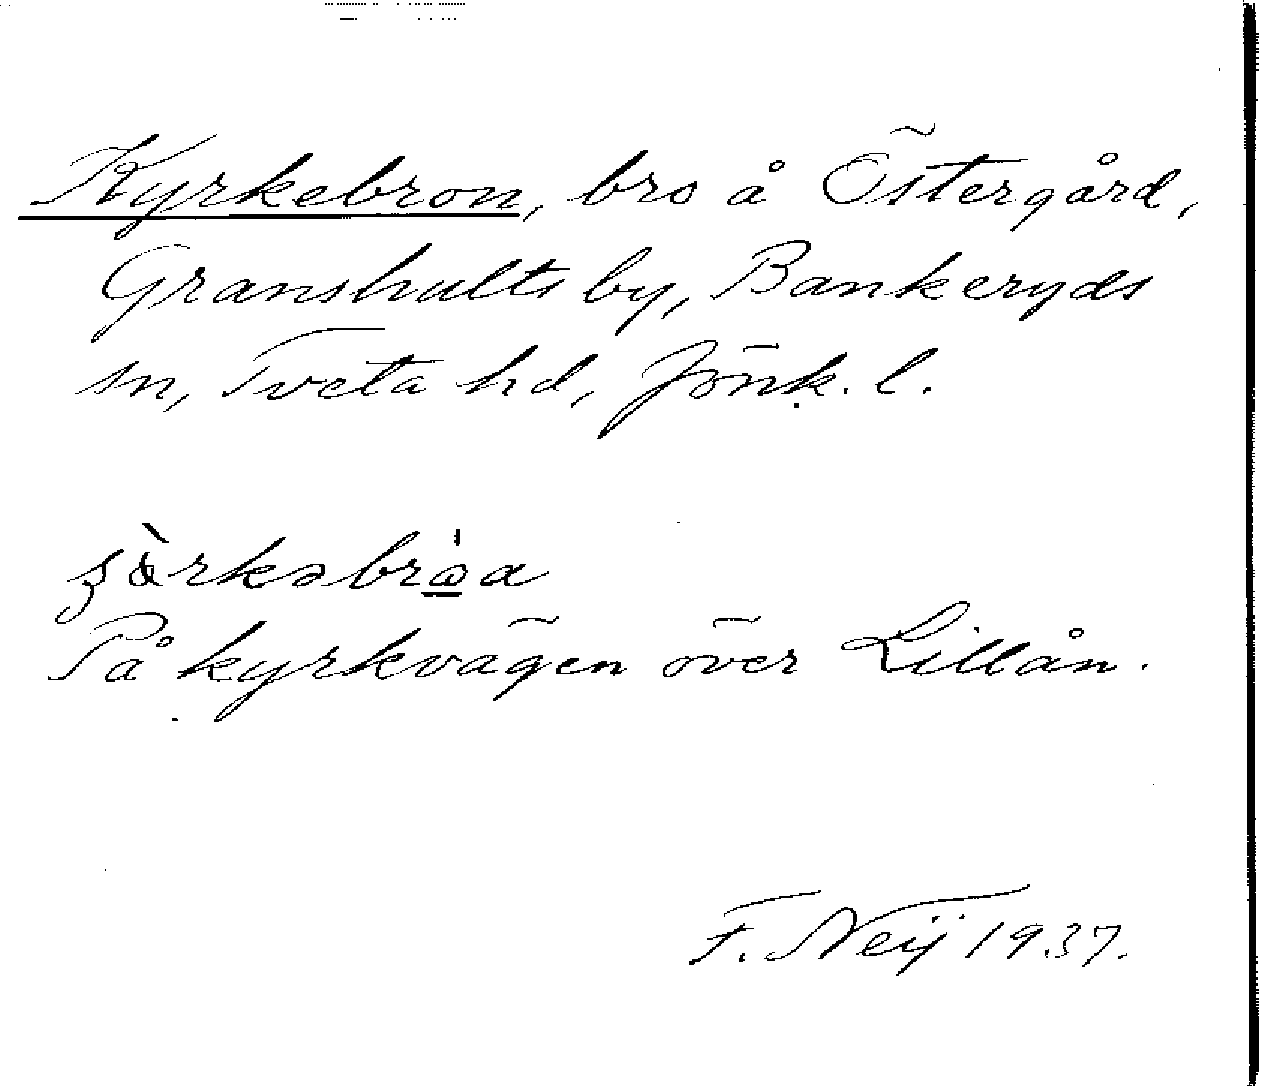 Kyrkebron, bro å Östergård,
Granshults by, Bankeryds
sn, Tveta hd, Jönk. l.
På kyrkvägen över Lillån.
F. Neij 1937.